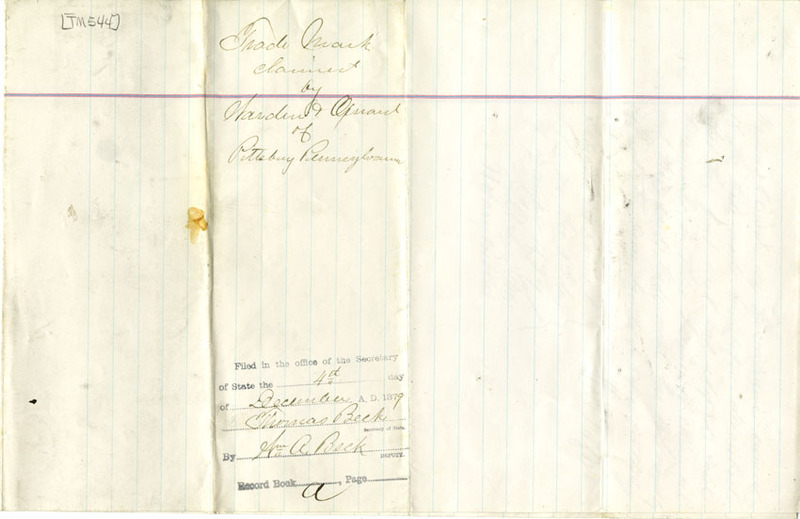 [TM544]
Trade Mark
claimed
by
Warden &
of
Pittsburg Pennsylvania
Filed in the office of the Secretary
of State the 4th day
of December A. D. 1879
Thomas Beck
Secretary of State.
By Wm A. Beck
DEPUTY.
Record Book A, Page